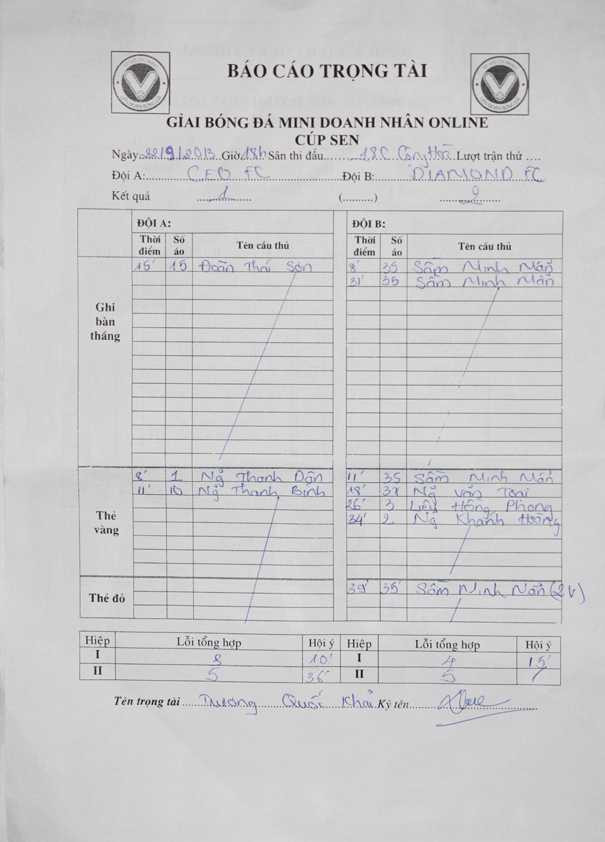 BÁO CÁO TRỌNG TÀI
GIẢI BÓNG ĐÁ MINI DOANH NHÂN ONLINE
CÚP SEN
Ngày 22/9/2013 Giờ 18h Sân thi đấu 18C Cộng Hoà Lượt trận thứ ....
Đội A: CEO FC Đội B: DIAMOND FC
Kết quả 1 (..........) 2
ĐỘI A: ĐỘI B:
Thời điểm Số áo Tên cầu thủ Thời điểm Số áo Tên cầu thủ
Ghi bàn thắng
15' 15 Đoàn Thái Sơn 8' 35 Sầm Minh Mẫn
31' 35 Sầm Minh Mẫn
Thẻ vàng
8' 1 Ng Thanh Dân 11' 35 Sầm Minh Mẫn
11' 10 Ng Thanh Bình 18' Ng Văn
26' 3 Liêu Hồng Phong
34' 2 Ng Khánh Hoàng
Thẻ đỏ
39' 35 Sầm Minh Mẫn (2V)
Hiệp Lỗi tổng hợp Hội ý Hiệp Lỗi tổng hợp Hội ý
I 8 10' I 4 15'
II 5 36' II 5 /
Tên trọng tài Trương Quốc Khải Ký tên